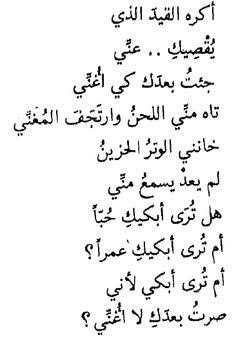 أكره القيدَ الذي
يُقْصِيكِ .. عنِّي
جئتُ بعدَك كي أُغنِّي
تاه منِّي اللحنُ وارتَجَفَ المُغنِّي
خانني الوترُ الحزينُ
لم يعدْ يسمعُ منِّي
هل تُرى أبكيكِ حُبّاً
أم تُرى أبكيكِ عمراً ؟
أم تُرى أبكي لأني
صرتُ بعدَكِ لا أُغنِّي ؟